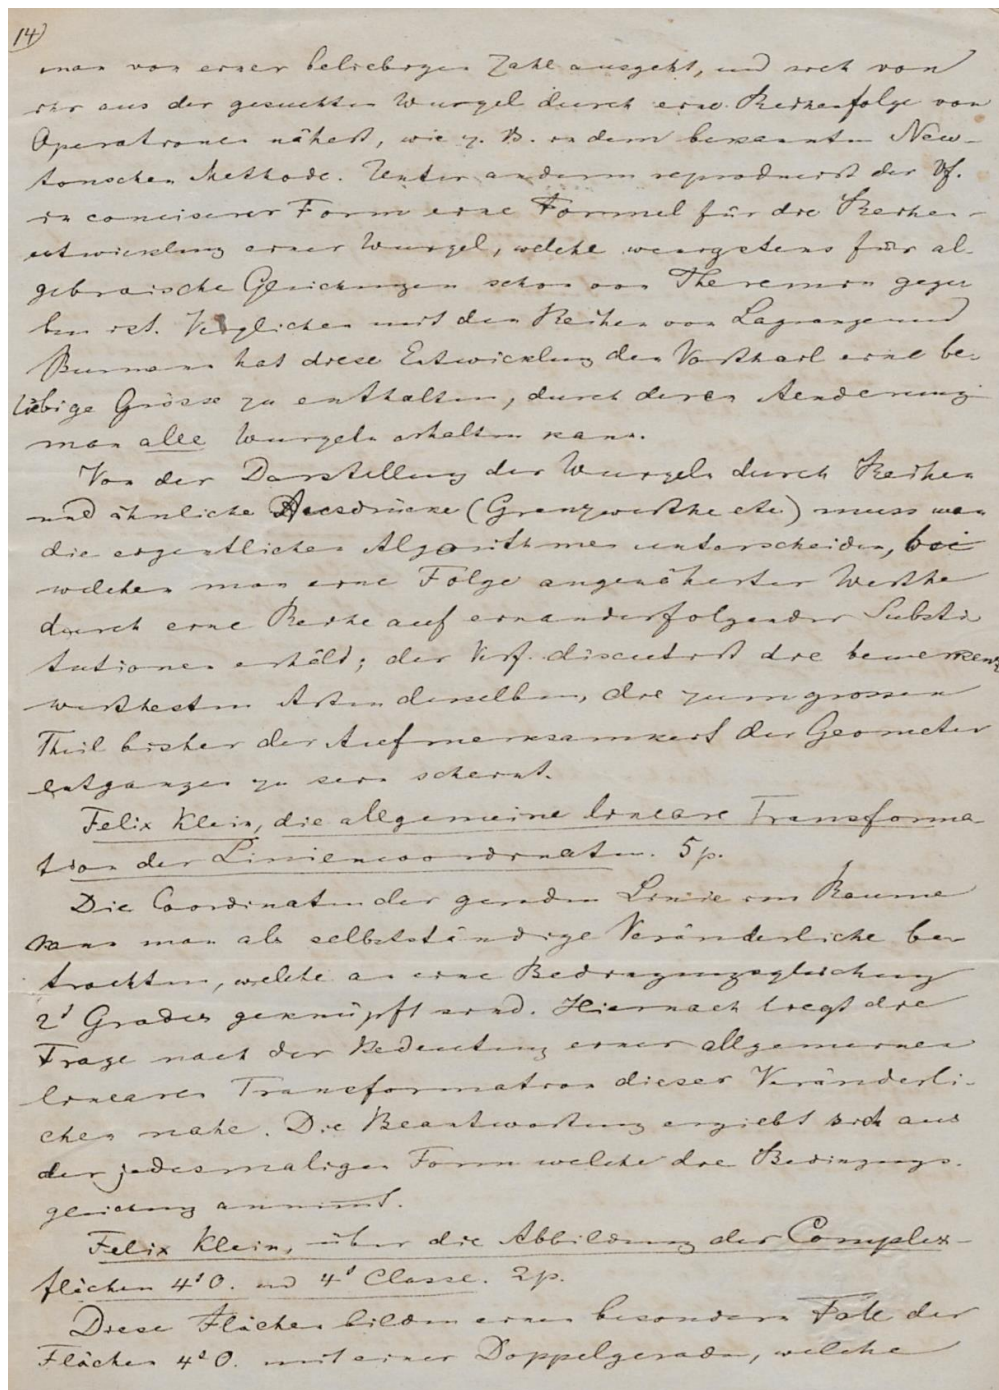 14)
man von einer beliebigen Zahl ausgeht, und sich von
ihr aus der gesuchten Wurzel durch eine Reihenfolge von
Operationen nähert, wie z. B. in dem bekannten New-
tonschen Methode. Unter anderm reproducirt der Vf.
in conciserer Form eine Formel für die Reihen-
entwicklung einer Wurzel, welche wenigstens für al-
gebraische Gleichungen schon von Theremin gege
ben ist. Verglichen mit den Reihen von Lagrange und
Burmann hat diese Entwicklung den Vortheil eine be-
liebige Grösse zu enthalten, durch deren Aenderung
man alle Wurzeln erhalten kann.
Von der Darstellung der Wurzeln durch Reihen
und ähnliche Ausdrücke (Grenzwerthe etc) muss man
die eigentlichen Algorithmen unterscheiden, bei
welchen man eine Folge angenäherter Werthe
durch eine Reihe auf einanderfolgender Substi
tutionen erhält; der Verf. discutirt die bemerkens
werthesten Arten derselben, die zum grossen
Theil bisher der Aufmerksamkeit der Geometer
entgangen zu sein scheint.
Felix Klein, die allgemeine lineare Transforma-
tion der Liniencoordinaten. 5 p.
Die Coordinaten der geraden Linie im Raume
kann man als selbstständige Veränderliche be-
trachten, welche an eine Bedingungsgleichung
2t Grades geknüpft sind. Hiernach liegt die
Frage nach der Bedeutung einer allgemeinen
linearen Transformation dieser Veränderli-
chen nahe. Die Beantwortung ergiebt sich aus
der jedesmaligen Form welche die Bedingungs-
gleichung annimmt.
Felix Klein, über die Abbildung der Complex-
flächen 4t O. und 4t Classe. 2p.
Diese Flächen bilden einen besondern Fall der
Flächen 4t O. mit einer Doppelgeraden, welche